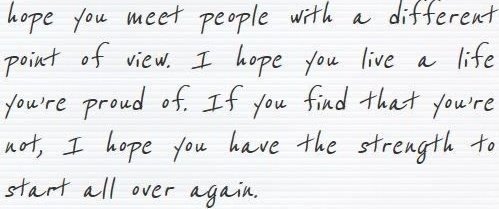 hope you meet people with a different
point of view. I hope you live a life
you're proud of. If you find that you're
not, I hope you have the strength to
start all over again.